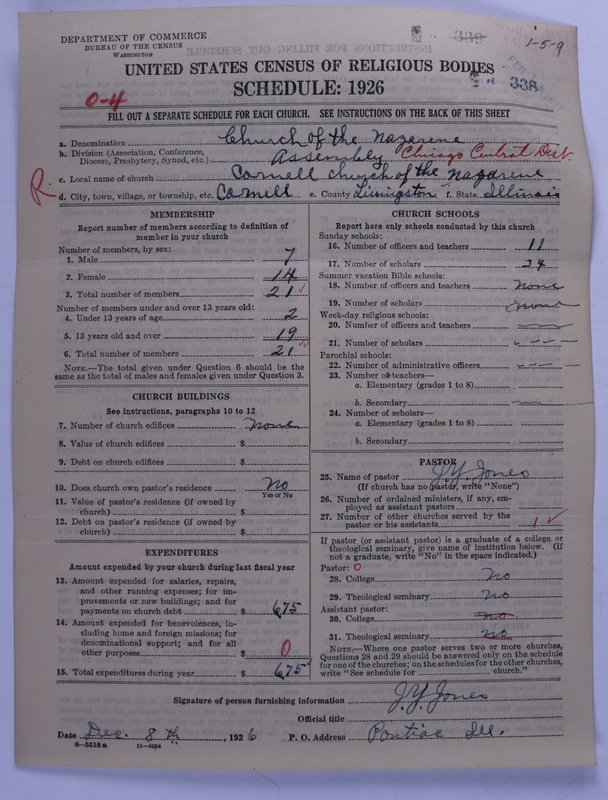 DEPARTMENT OF COMMERCE
BUREAU OF THE CENSUS
WASHINGTON
339
1-5-9
338
UNITED STATES CENSUS OF RELIGIOUS BODIES
SCHEDULE: 1926
0-4
FILL OUT A SEPARATE SCHEDULE FOR EACH CHURCH. SEE INSTRUCTIONS ON THE BACK OF THIS SHEET
a. Denomination Church of the Nazarene
b. Division (Association, Conference, Diocese, Presbytery, Synod, etc.) Assembly Chicago Central Dist.
R.
c. Local name of church Cornell Church of the Nazarene
d. City, town, village, or township, etc. Cornell e. County Livingston f. State Illinois
MEMBERSHIP
Report number of members according to definition of member in your church
Number of members, by sex:
1. Male 7
2. Female 14
3. Total number of members 21
Number of members under and over 13 years old:
4. Under 13 years of age 2
5. 13 years old and over 19
6. Total number of members 21
NOTE.—The total given under Question 6 should be the same as the total of males and females given under Question 3.
CHURCH BUILDINGS
See instructions, paragraphs 10 to 12
7. Number of church edifices none
8. Value of church edifices $
9. Debt on church edifices $
10. Does church own pastor's residence No
Yes or No
11. Value of pastor's residence (if owned by church) $
12. Debt on pastor's residence (if owned by church) $
EXPENDITURES
Amount expended by your church during last fiscal year
13. Amount expended for salaries, repairs, and other running expenses; for improvements or new buildings; and for payments on church debt $ 675
14. Amount expended for benevolences, including home and foreign missions; for denominational support; and for all other purposes $ 0
15. Total expenditures during year $ 675
CHURCH SCHOOLS
Report here only schools conducted by this church
Sunday schools:
16. Number of officers and teachers 11
17. Number of scholars 34
Summer vacation Bible schools:
18. Number of officers and teachers none
19. Number of scholars none
Week-day religious schools:
20. Number of officers and teachers
21. Number of scholars
Parochial schools:
22. Number of administrative officers
23. Number of teachers—
a. Elementary (grades 1 to 8)
b. Secondary
24. Number of scholars—
a. Elementary (grades 1 to 8)
b. Secondary
PASTOR
25. Name of pastor J. Y. Jones
(If church has no pastor, write "None")
26. Number of ordained ministers, if any, employed as assistant pastors
27. Number of other churches served by the pastor or his assistants 1
If pastor (or assistant pastor) is a graduate of a college or theological seminary, give name of institution below. (If not a graduate, write "No" in the space indicated.)
Pastor: 0
28. College No
29. Theological seminary No
Assistant pastor:
30. College no
31. Theological seminary no
NOTE.—Where one pastor serves two or more churches, Questions 28 and 29 should be answered only on the schedule for one of the churches; on the schedules for the other churches, write "See schedule for church."
Signature of person furnishing information J. Y. Jones
Official title
Date Dec. 8th, 1926 P. O. Address Pontiac Ill.
8-5518a 11-4094